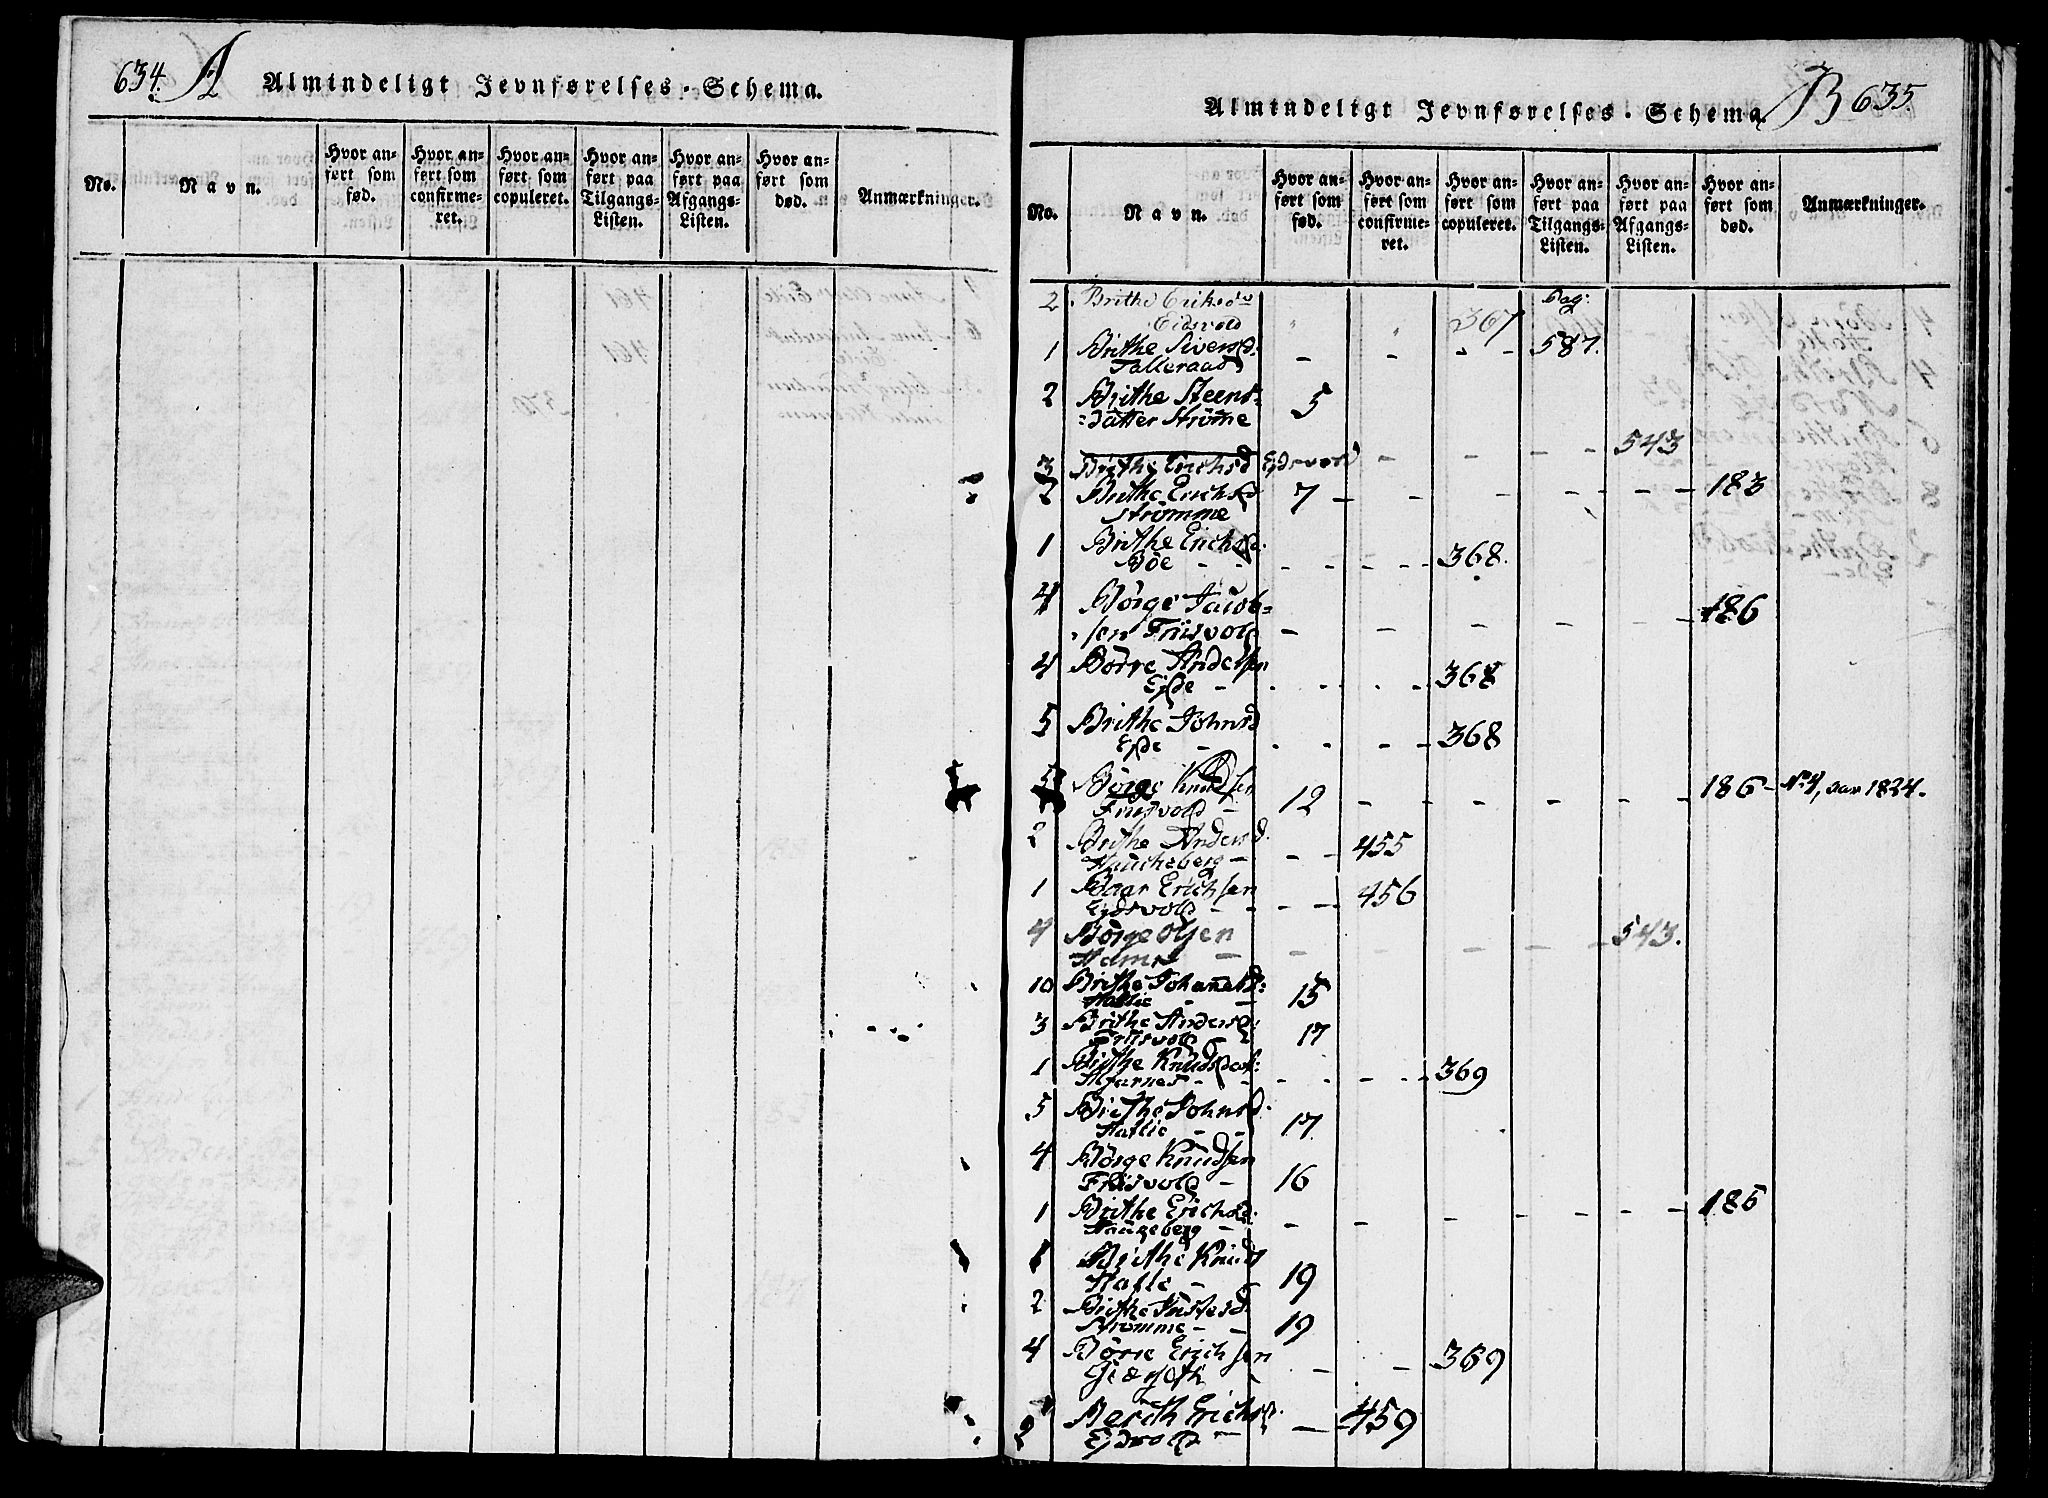 634. A
Almindeligt Jevnførelses-Schema.
No.
Navn.
Hvor anført som fød.
Hvor anført som confirmeret.
Hvor anført som copuleret.
Hvor anført paa Tilgangs-Listen.
Hvor anført paa Afgangs-Listen.
Hvor anført som død.
Anmærkninger.
Almindeligt Jevnførelses-Schema. B 635
No.
Navn.
Hvor anført som fød.
Hvor anført som confirmeret.
Hvor anført som copuleret.
Hvor anført paa Tilgangs-Listen.
Hvor anført paa Afgangs-Listen.
Hvor anført som død.
Anmærkninger.
2 Brithe Eriksdr Pag:
Eidsvold " " 367
1 Brithe Siversd. - - - 587.
Talleraad
2 Brithe Steens- 5
datter Strömme
3 Brithe Erichsd Ejdsvold - - - 543
2 Brithe Erichsd 7 - - - - - 183
Strömme
1 Brithe Erichsd.
Böe - - - - 368.
4 Börge Jacob-
sen Friisvold - - - - - 186
4 Börge Andersen
Ejde - - - 368
5 Brithe Johnsd
Ejde - - - 368
5 Börge Knudsen
Friisvold - 12 - - - - - 186 - No 4, aar 1824.
2 Brithe Andersd.
Haucheberg - - - 455
1 Baar Erichsen
Ejdsvold - - - 456
4 Börge Olsen
Hamr - - - - - - 543.
10 Brithe Johannesd:
Hatlie - - 15
3 Brithe Andersd:
Friisvold - 17
1 Birthe Knudsdat:
Alfarnes - - - - 369
5 Brithe Johnsd.
Hatlie - - 17
4 Börge Knudsen
Friisvold - 16
1 Brithe Erichsd.
Haugeberg - - - - - - - 185
1 Brithe Knud
Hatle - 19
2 Birthe Iverd.
Strömme - - 19
4 Börre Erichsen
- - 369
2 Berith Erichsd.
Ejdsvold - - 459